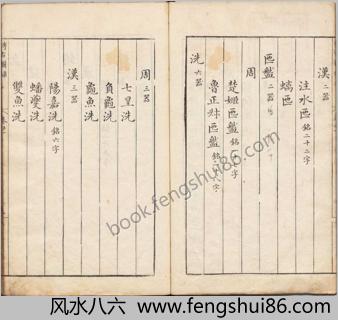 漢 二器
注水匜 銘二十二字
螭匜
匜盤 二器
周
楚姬匜盤 銘 字
魯正叔匜盤 銘 八字
洗 六器
周 三器
七星洗
負龜洗
龜魚洗
漢 三器
陽嘉洗 銘六字
蟠夔洗
雙魚洗
book.fengshui86.com
风水八六 www.fengshui86.com